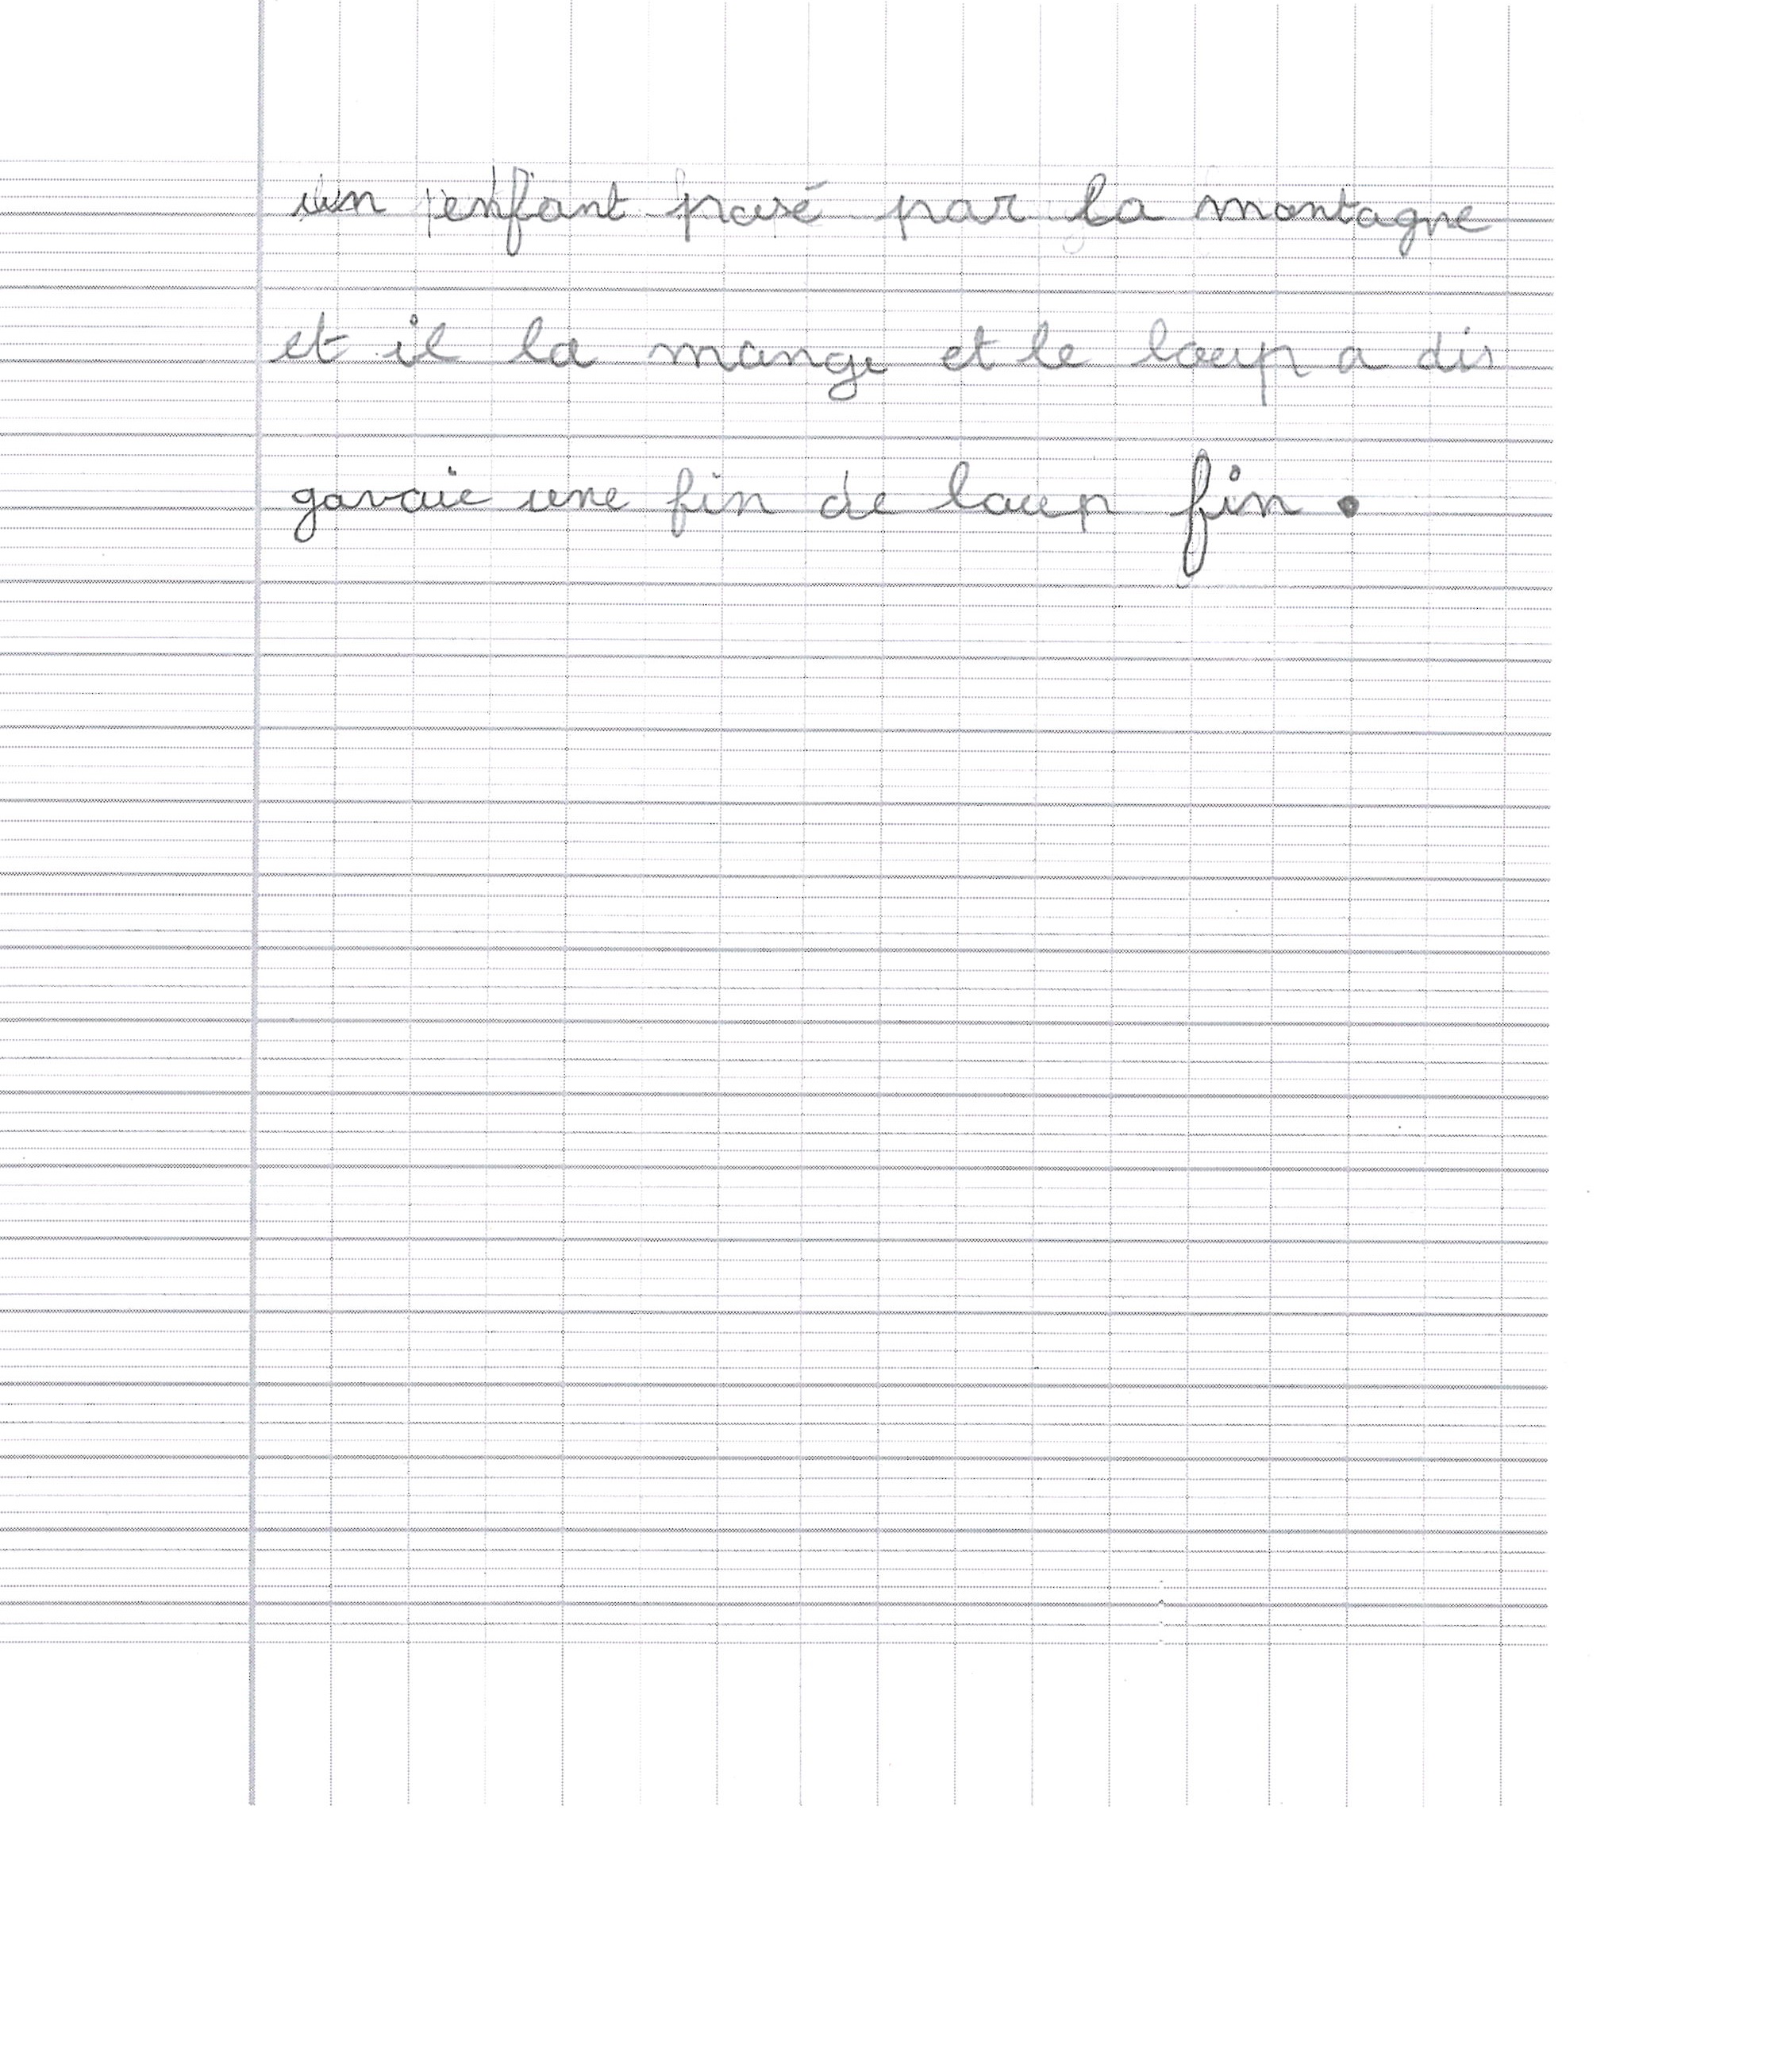 un enfant pasé par la montagne
et il la mange et le loup a dis
gavaie une fin de loup fin.